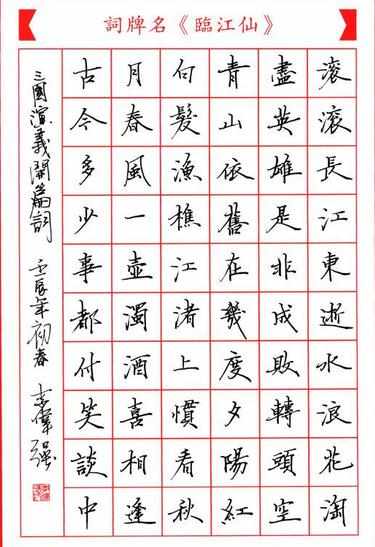 詞牌名《臨江仙》
滚滚長江東逝水浪花淘
盡英雄是非成敗轉頭空
青山依舊在幾度夕陽紅
白髮漁樵江渚上慣看秋
月春風一壺濁酒喜相逢
古今多少事都付笑談中
三國演義開篇詞 壬辰年初春 志偉強